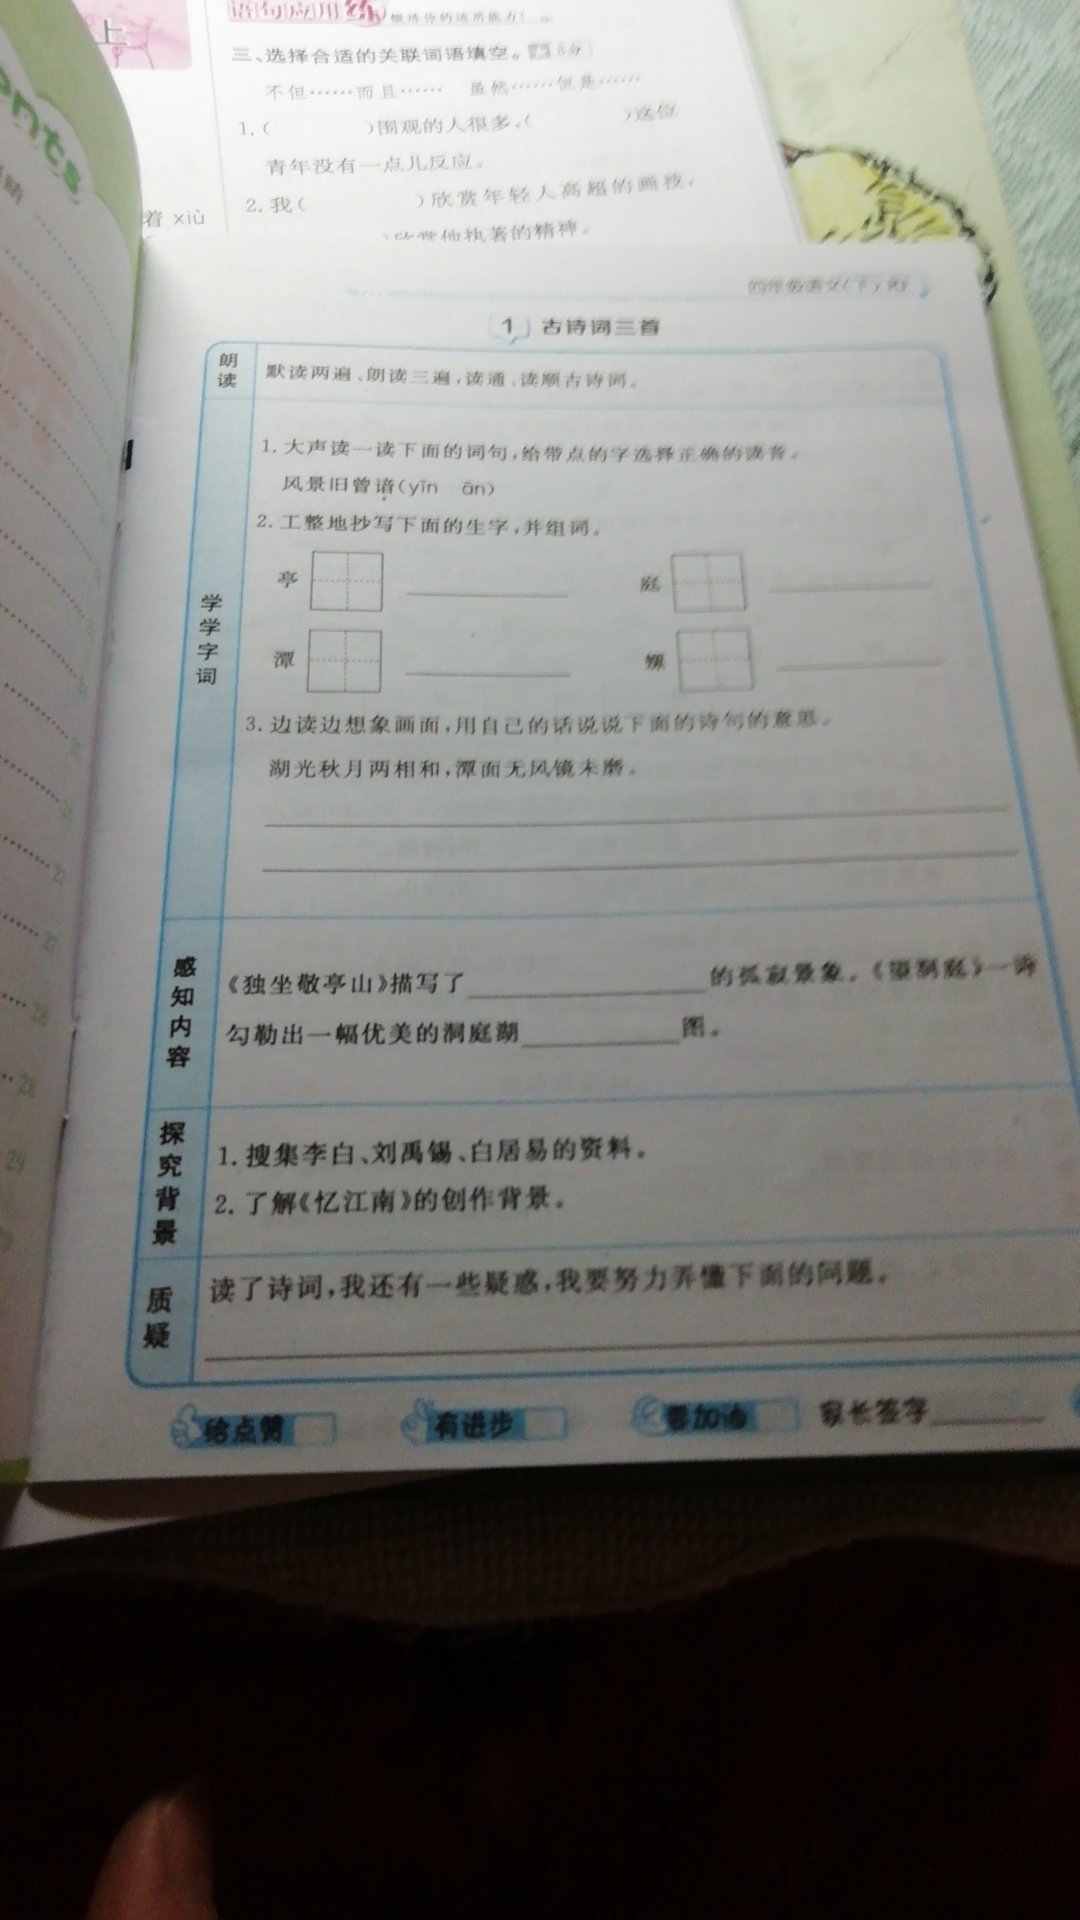 上
语句应用练 锻炼你的运用能力!
三、选择合适的关联词语填空。 8分
不但……而且…… 虽然……但是……
1.( )围观的人很多,( )这位
青年没有一点儿反应。
2.我( )欣赏年轻人高超的画技,
)欣赏他执著的精神。
着 xiù
四年级语文(下)
1 古诗词三首
朗读
默读两遍、朗读三遍,读通、读顺古诗词。
学学字词
1.大声读一读下面的词句,给带点的字选择正确的读音。
风景旧曾谙(yīn ān)
2.工整地抄写下面的生字,并组词。
亭 庭
潭 螺
3.边读边想象画面,用自己的话说说下面的诗句的意思。
湖光秋月两相和,潭面无风镜未磨。
感知内容
《独坐敬亭山》描写了 的孤寂景象。《望洞庭》一诗
勾勒出一幅优美的洞庭湖 图。
探究背景
1.搜集李白、刘禹锡、白居易的资料。
2.了解《忆江南》的创作背景。
质疑
读了诗词,我还有一些疑惑,我要努力弄懂下面的问题。
给点赞 有进步 要加油 家长签字
21
26
28
29